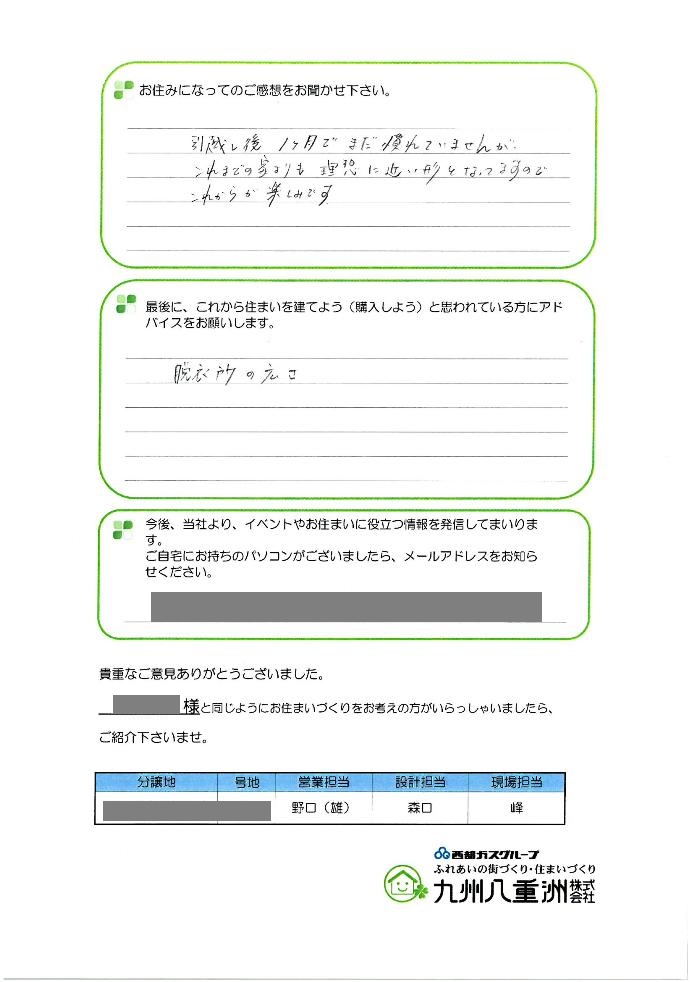 お住みになってのご感想をお聞かせ下さい。
引越し後 1ヶ月で まだ 慣れていませんが、
これまでの家よりも 理想に近い形となってますので
これからが楽しみです
最後に、これから住まいを建てよう（購入しよう）と思われている方にアド
バイスをお願いします。
脱衣所の広さ
今後、当社より、イベントやお住まいに役立つ情報を発信してまいりま
す。
ご自宅にお持ちのパソコンがございましたら、メールアドレスをお知ら
せください。
貴重なご意見ありがとうございました。
様と同じようにお住まいづくりをお考えの方がいらっしゃいましたら、
ご紹介下さいませ。
分譲地 号地 営業担当 設計担当 現場担当
野口（雄） 森口 峰
西部ガスグループ
ふれあいの街づくり・住まいづくり
九州八重洲株式会社